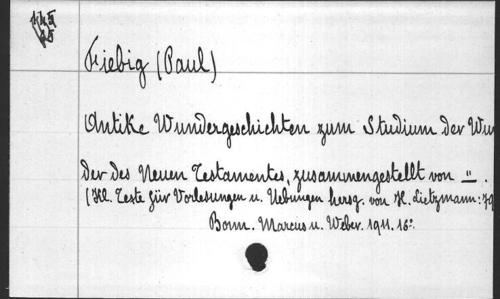 Fiebig (Paul)
Antike Wundergeschichten zum Studium der Wun
der des Neuen Testamentes, zusammengestellt von ".
(Kl. Texte für Vorlesungen u. Uebungen hersg. von H. Lietzmann: 79
Bonn. Marcus u. Weber. 1911. 16º.